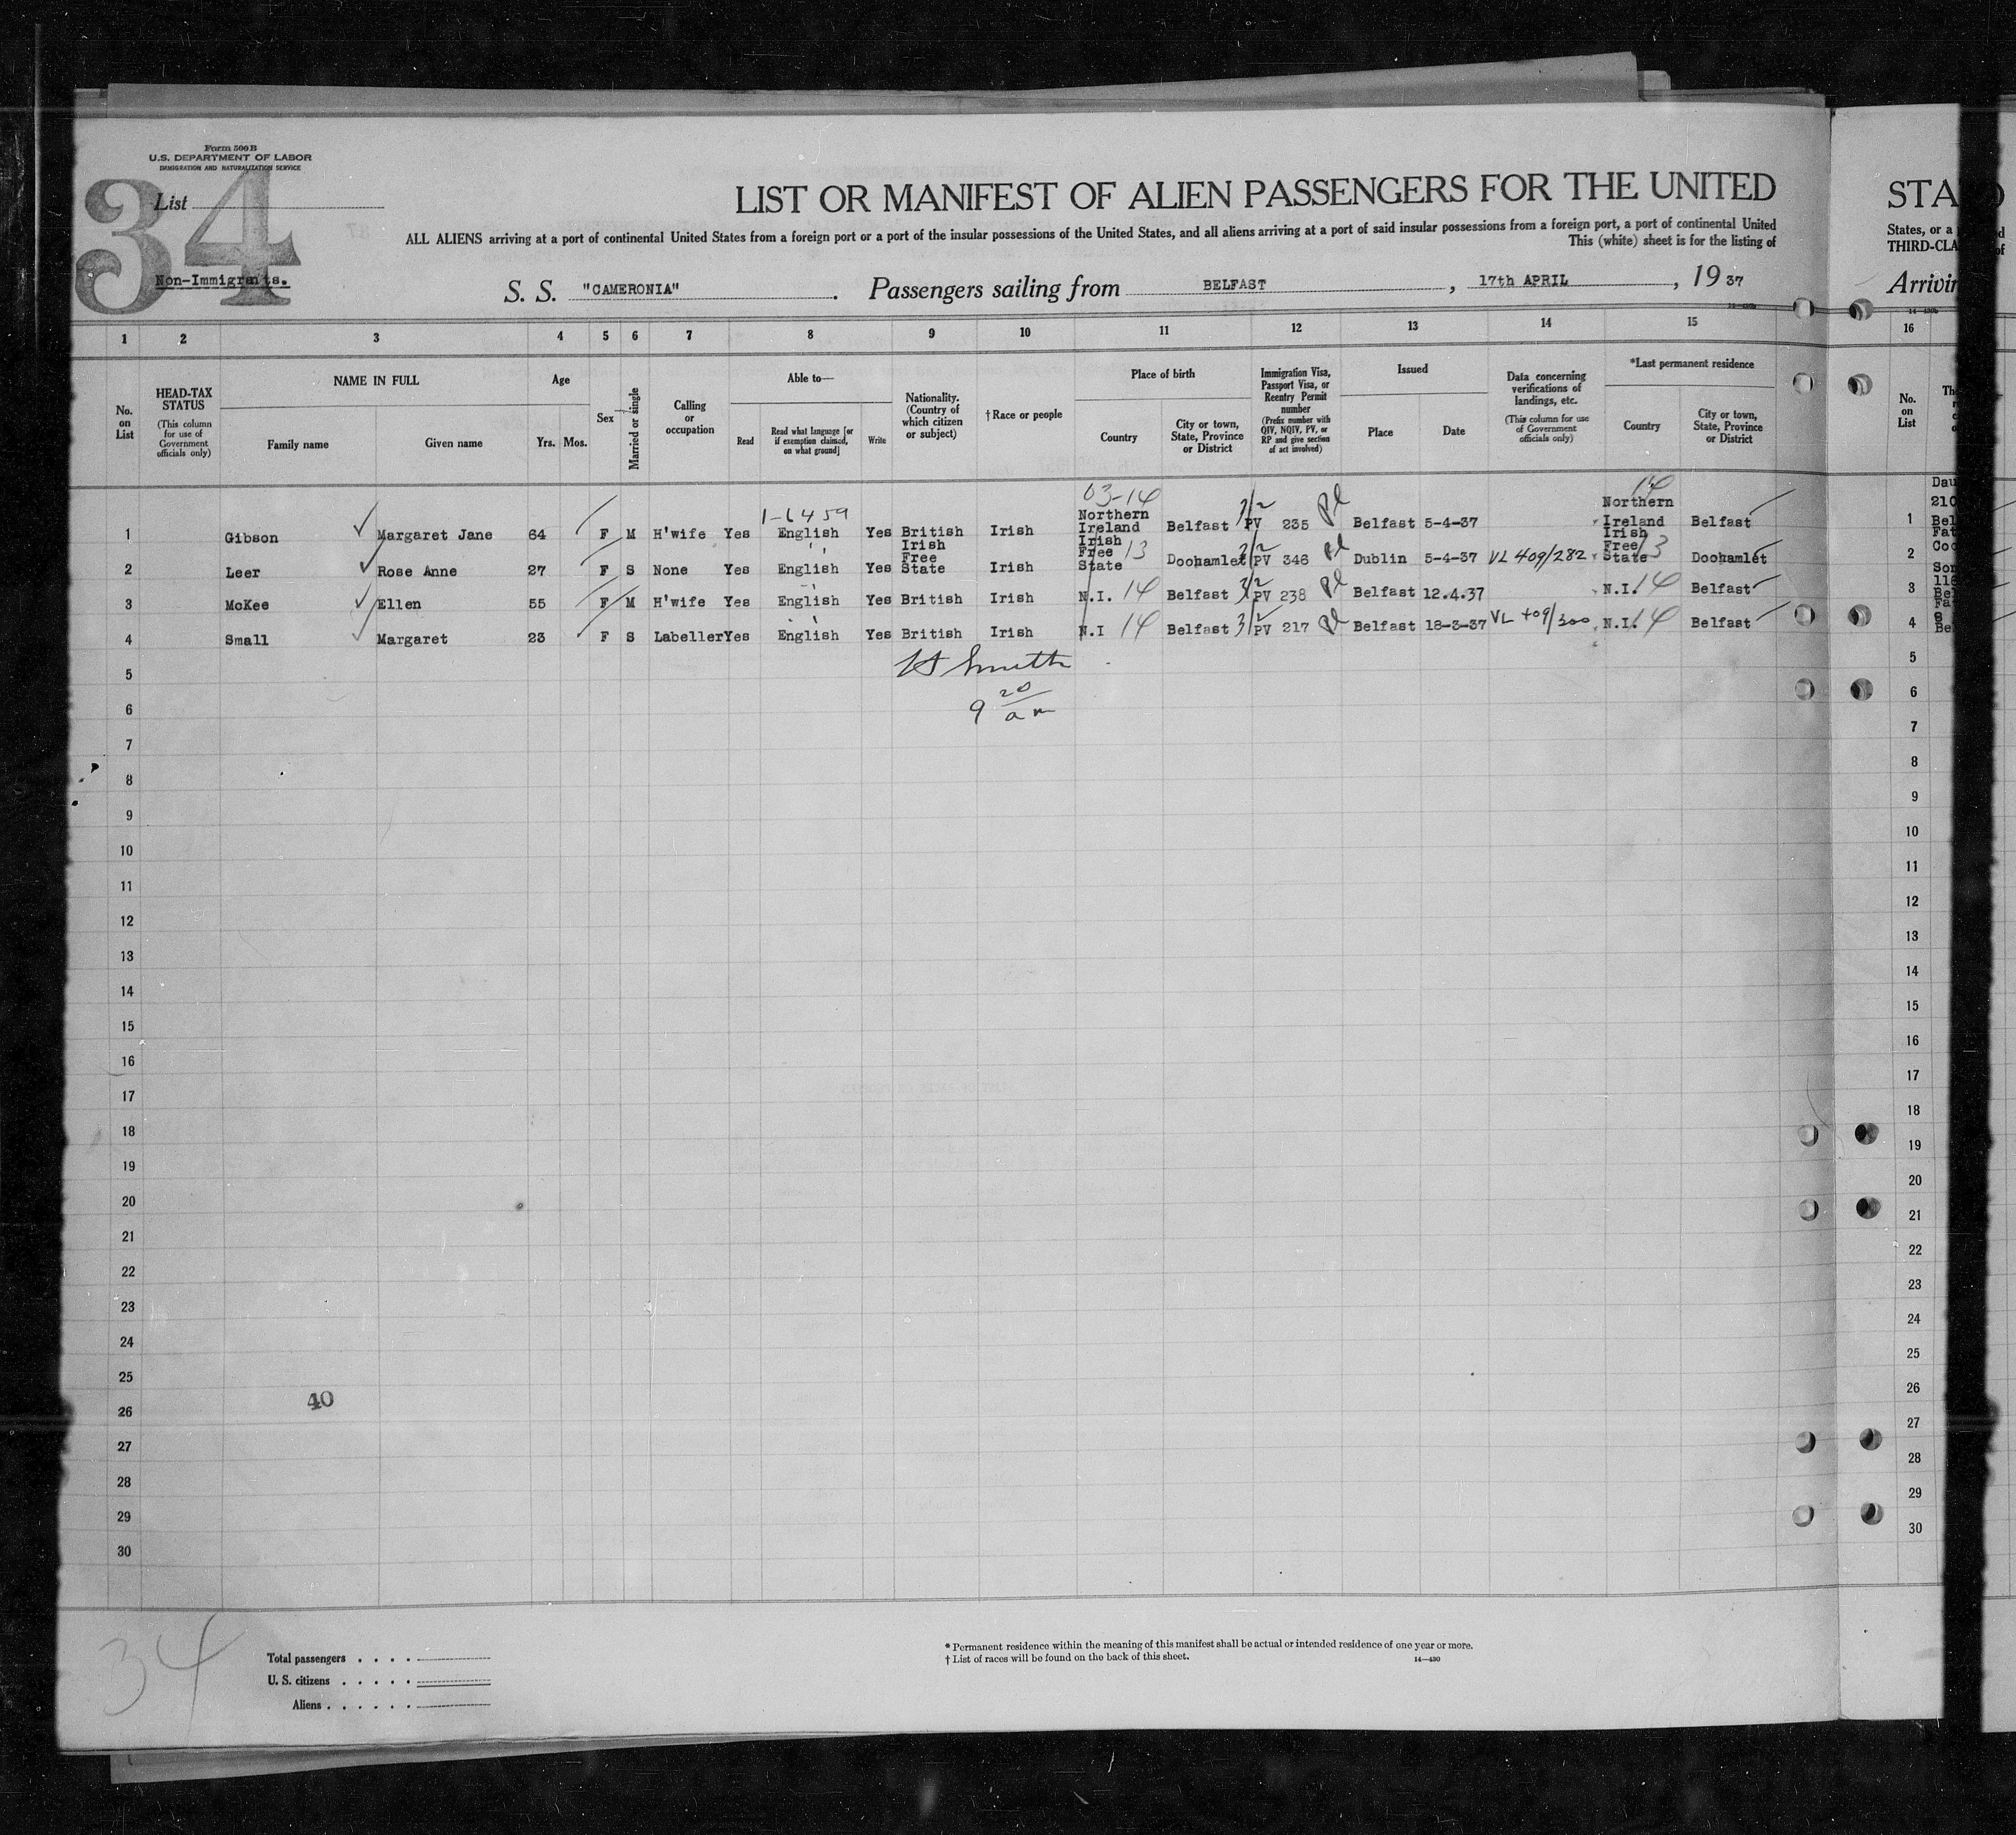 Form 500 B
U.S. DEPARTMENT OF LABOR
IMMIGRATION AND NATURALIZATION SERVICE
34
List
Non-Immigrants.
LIST OR MANIFEST OF ALIEN PASSENGERS FOR THE UNITED
ALL ALIENS arriving at a port of continental United States from a foreign port or a port of the insular possessions of the United States, and all aliens arriving at a port of said insular possessions from a foreign port, a port of continental United
This (white) sheet is for the listing of
S. S. "CAMERONIA" . Passengers sailing from BELFAST , 17th APRIL , 19 37
STA
States, or a
THIRD-CLA
1 2 3 4 5 6 7 8 9 10 11 12 13 14 15 16
No. on List
HEAD-TAX STATUS (This column for use of Government officials only)
NAME IN FULL
Family name Given name
Age
Yrs. Mos.
Sex
Married or single
Calling or occupation
Able to—
Read Read what language [or if exemption claimed, on what ground] Write
Nationality. (Country of which citizen or subject)
†Race or people
Place of birth
Country City or town, State, Province or District
Immigration Visa, Passport Visa, or Reentry Permit number (Prefix number with QIV, NQIV, PV, or RP and give section of act involved)
Issued
Place Date
Data concerning verifications of landings, etc. (This column for use of Government officials only)
*Last permanent residence
Country City or town, State, Province or District
No. on List
03-14 14
1-6459
1 Gibson Margaret Jane 64 F M H'wife Yes English Yes British Irish Northern Ireland Belfast 3/2 PV 235 Belfast 5-4-37 Northern Ireland Belfast 1
2 Leer Rose Anne 27 F S None Yes English Yes Irish Free State Irish Irish Free State 13 Doohamlet 3/2 PV 346 Dublin 5-4-37 VL 409/282 Irish Free State 13 Doohamlet 2
3 McKee Ellen 55 F M H'wife Yes English Yes British Irish N.I. 14 Belfast 3/2 PV 238 Belfast 12.4.37 N.I. 14 Belfast 3
4 Small Margaret 23 F S Labeller Yes English Yes British Irish N.I 14 Belfast 3/2 PV 217 Belfast 18-3-37 VL 409/300 N.I. 14 Belfast 4
Smith
9 20 am
5 5
6 6
7 7
8 8
9 9
10 10
11 11
12 12
13 13
14 14
15 15
16 16
17 17
18 18
19 19
20 20
21 21
22 22
23 23
24 24
25 25
40
26 26
27 27
28 28
29 29
30 30
34
Total passengers . . . .
U. S. citizens . . . . .
Aliens . . . . . .
* Permanent residence within the meaning of this manifest shall be actual or intended residence of one year or more.
† List of races will be found on the back of this sheet. 14—430